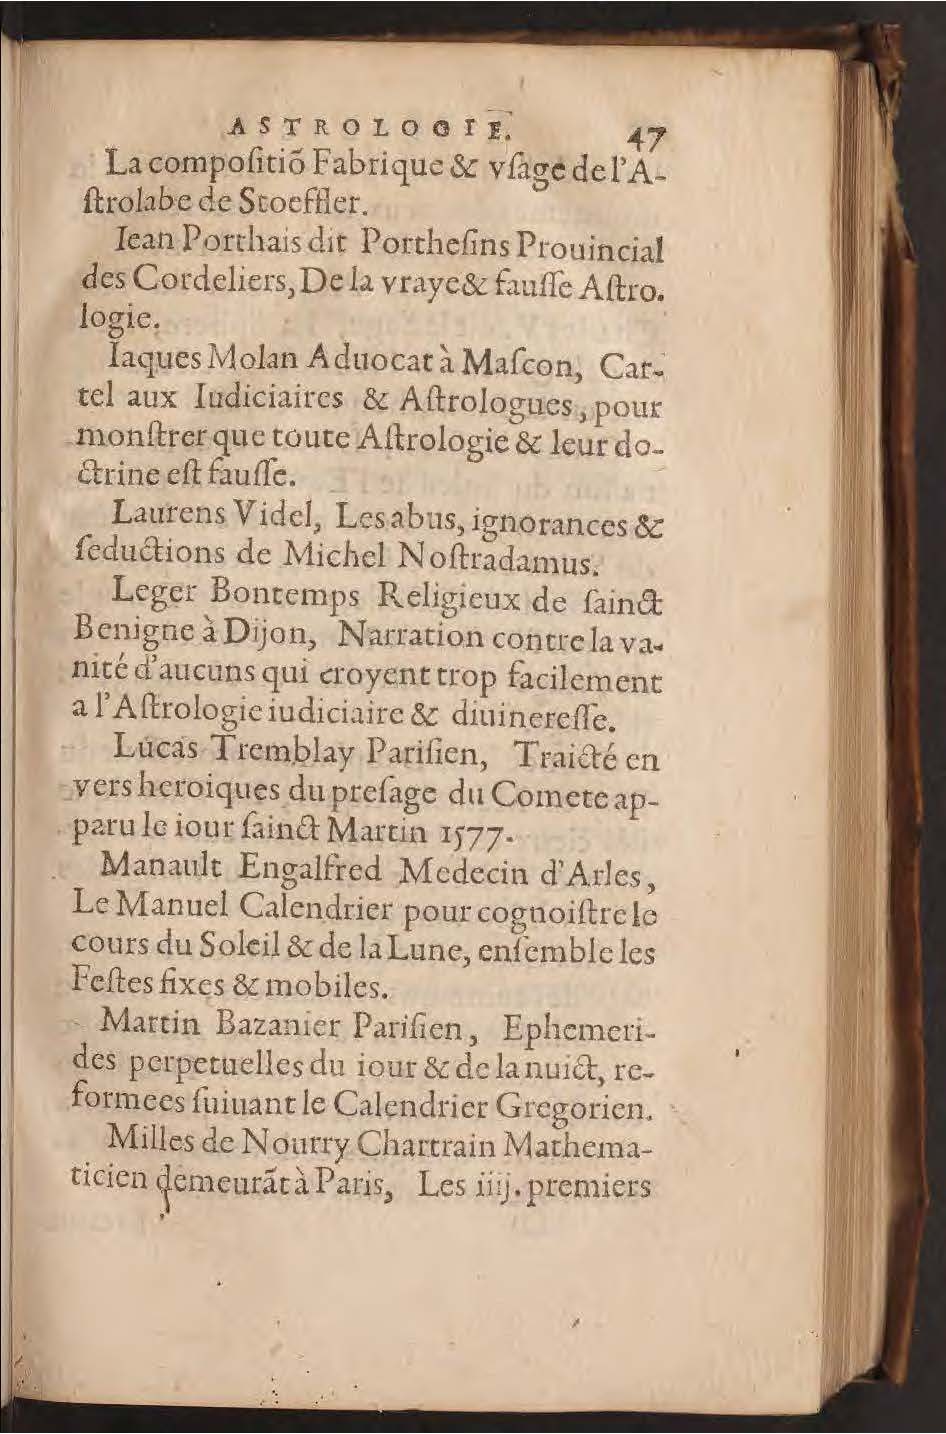 ASTROLOGIE. 47
La compoſitiõ Fabrique & vſage de l'A-
ſtrolabe de Stoeffler.
Iean Porthais dit Portheſins Prouincial
des Cordeliers, De la vraye & fauſſe Aſtro.
logie.
Iaques Molan Aduocat à Maſcon, Car-
tel aux Iudiciaires & Aſtrologues, pour
monſtrer que toute Aſtrologie & leur do-
ctrine eſt fauſſe.
Laurens Videl, Les abus, ignorances &
ſeductions de Michel Noſtradamus.
Leger Bontemps Religieux de ſainct
Benigne à Dijon, Narration contre la va-
nité d'aucuns qui croyent trop facilement
a l'Aſtrologie iudiciaire & diuinereſſe.
Lucas Tremblay Pariſien, Traicté en
vers heroiques du preſage du Comete ap-
paru le iour ſainct Martin 1577.
Manault Engalfred Medecin d'Arles,
Le Manuel Calendrier pour cognoiſtre le
cours du Soleil & de la Lune, enſemble les
Feſtes fixes & mobiles.
Martin Bazanier Pariſien, Ephemeri-
des perpetuelles du iour & de la nuict, re-
formees ſuiuant le Calendrier Gregorien.
Milles de Nourry Chartrain Mathema-
ticien demeurãt à Paris, Les iiij. premiers